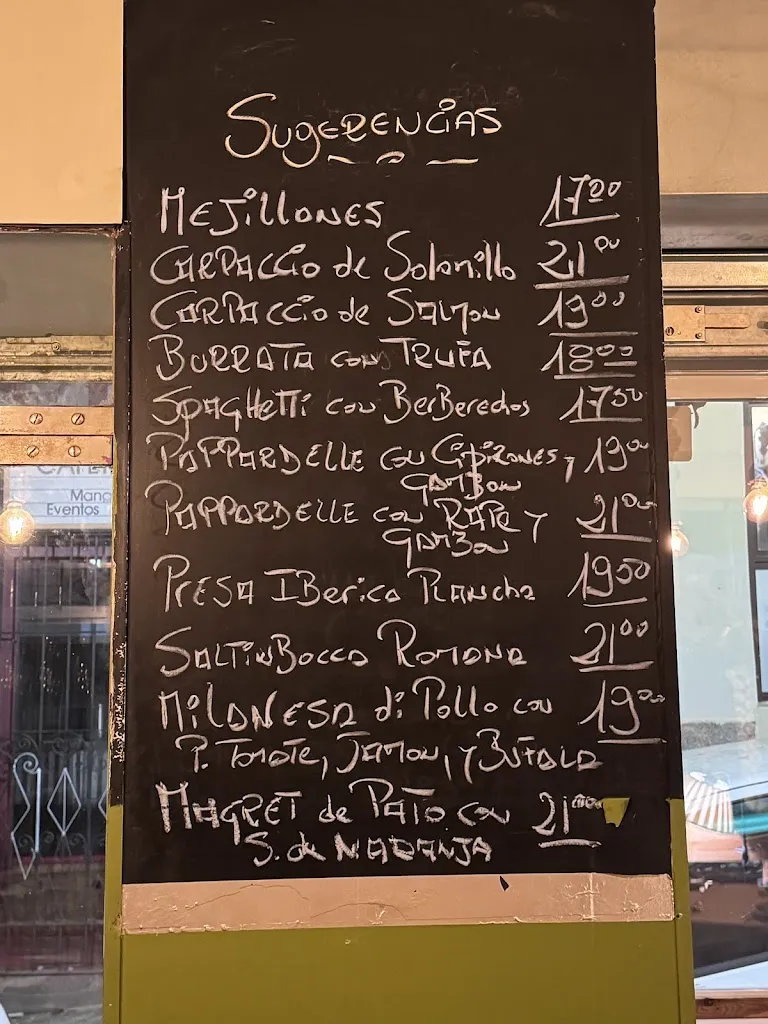 SUGERENCIAS
MEJILLONES 17'00
CARPACCIO de SOLOMILLO 21'00
CARPACCIO de SALMON 19'00
BURRATA con TRUFA 18'00
SPAGHETTI con BERBERECHOS 17'50
PAPPARDELLE con CHIPIRONES y 19'00
GAMBON
PAPPARDELLE con RAPE y 21'00
GAMBON
PRESA IBERICA PLANCHA 19'50
SALTINBOCCA ROMANA 21'00
MILANESA di POLLO con 19'00
P. TOMATE, JAMON, y BUFALA
MAGRET de PATO con 21'00
S. de NARANJA
Eventos